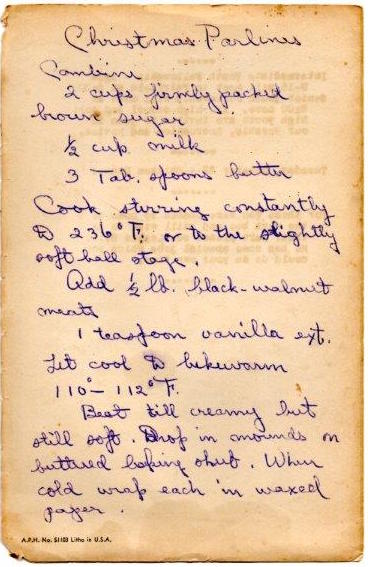 Christmas Parlines
Combine
2 cups firmly packed
brown sugar
½ cup milk
3 Tab. spoons butter
Cook stirring constantly
to 236° F. or to the slightly
soft ball stage.
Add ½ lb. black-walnut
meats
1 teaspoon vanilla ext.
Let cool to lukewarm
110° – 112° F.
Beat till creamy but
still soft. Drop in mounds on
buttered baking sheet. When
cold wrap each in waxed
paper.
A.P.H. No. S1103 Litho in U.S.A.